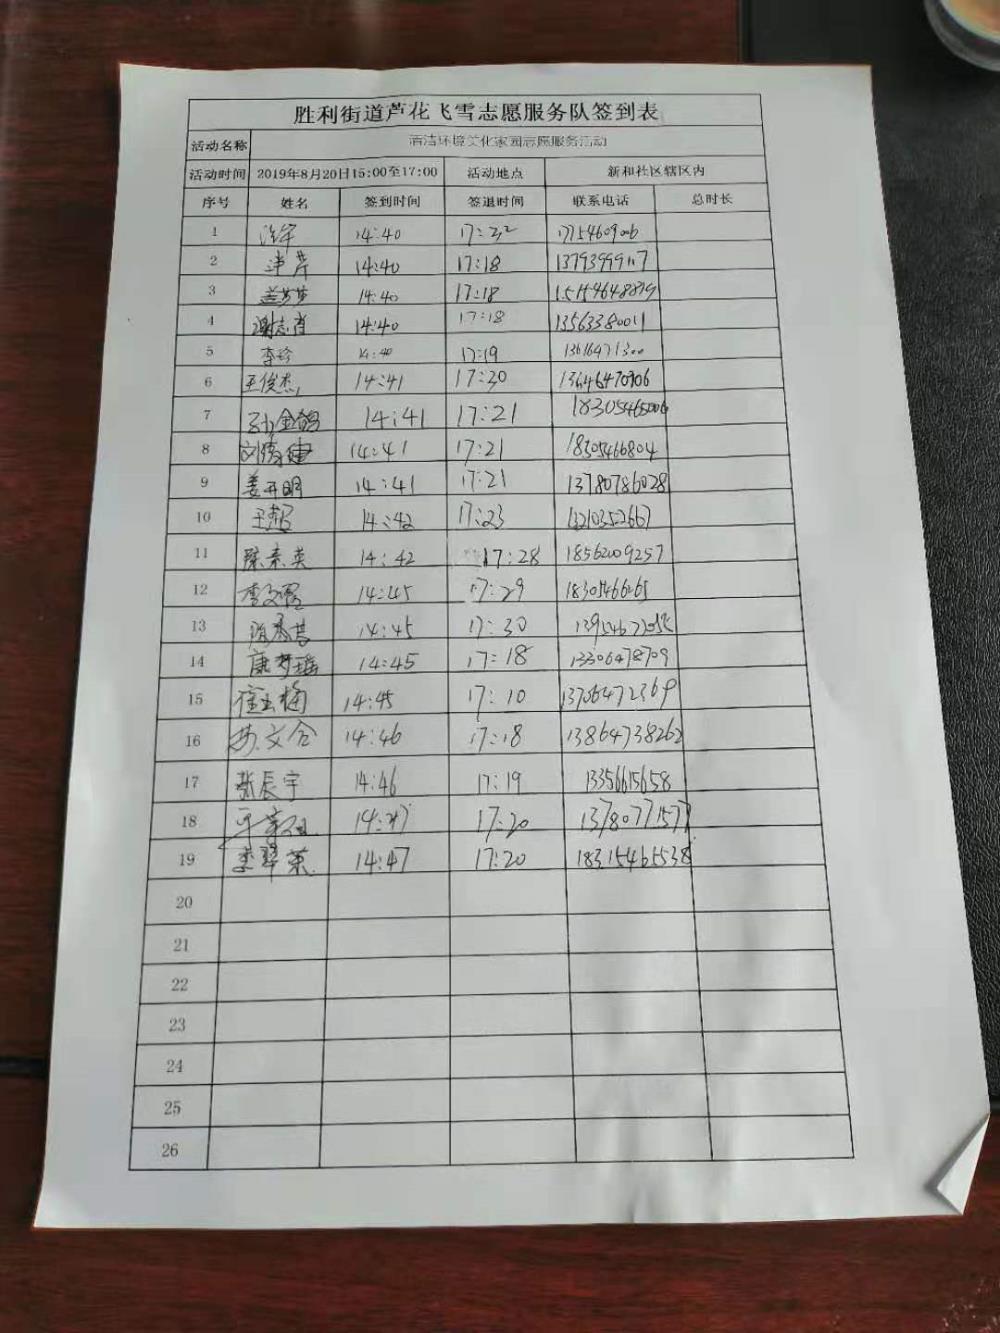 胜利街道芦花飞雪志愿服务队签到表
活动名称 清洁环境美化家园志愿服务活动
活动时间 2019年8月20日15:00至17:00 活动地点 新和社区辖区内
序号 姓名 签到时间 签退时间 联系电话 总时长
1 14:40 17:22
2 14:40 17:18
3 14:40 17:18
4 谢志肖 14:40 17:18 13563380011
5 李珍 14:40 17:19 13616471300
6 王俊杰 14:41 17:30
7 14:41 17:21
8 14:41 17:21 18305466804
9 姜开明 14:41 17:21 13780786028
10 王超 14:42 17:23 13210352667
11 陈素英 14:42 17:28 18562009257
12 14:45 17:29
13 14:45 17:30
14 康梦瑶 14:45 17:18 13306478709
15 14:45 17:10 13706472369
16 苏文合 14:46 17:18 13864738262
17 张辰宇 14:46 17:19
18 14:47 17:20 13780771577
19 李翠英 14:47 17:20 18315465538
20
21
22
23
24
25
26